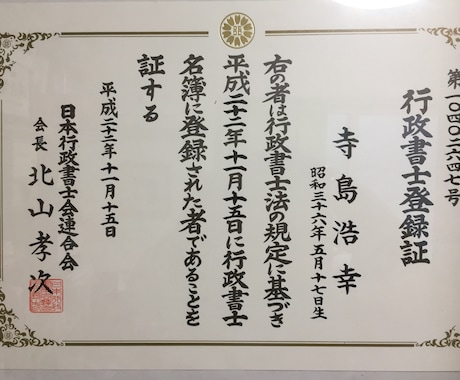 第一〇四〇二六四七号
行政書士登録証
寺島浩幸
昭和三十六年五月十七日生
右の者は行政書士法の規定に基づき
平成二十二年十一月十五日に行政書士
名簿に登録された者であることを
証する
平成二十二年十一月十五日
日本行政書士会連合会
会長 北山孝次